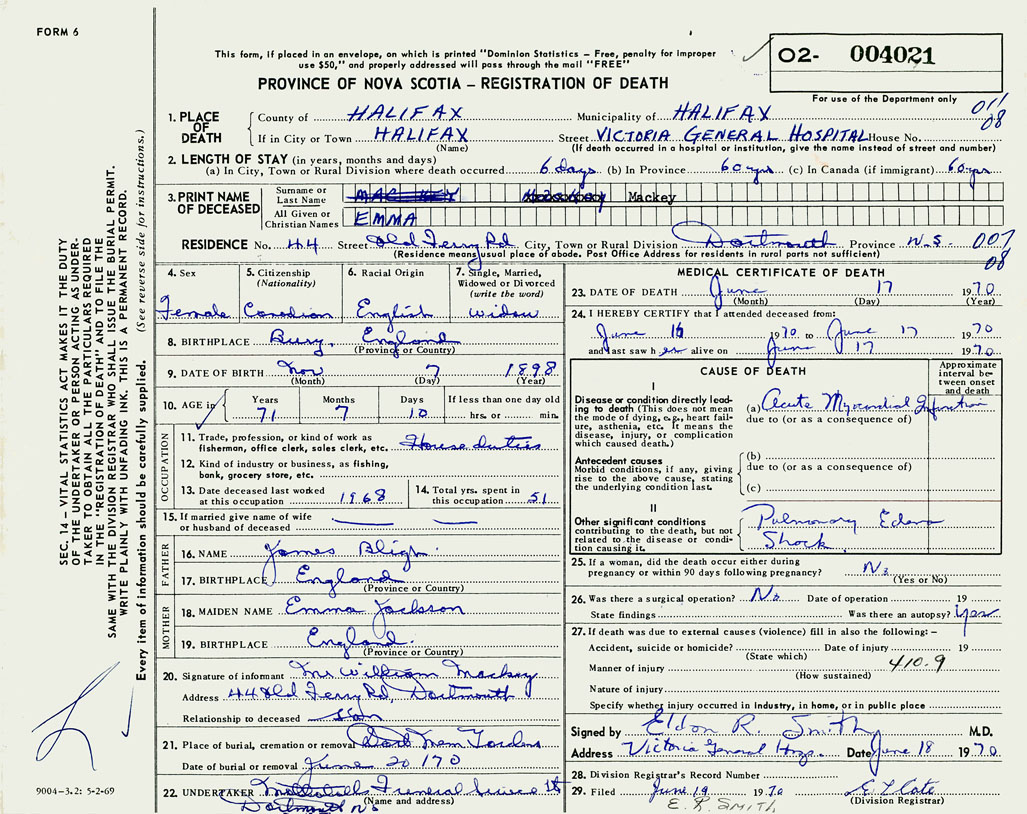 FORM 6
This form, if placed in an envelope, on which is printed "Dominion Statistics – Free, penalty for improper
use $50," and properly addressed will pass through the mail "FREE"
O2- 004021
PROVINCE OF NOVA SCOTIA – REGISTRATION OF DEATH
For use of the Department only
011
08
1. PLACE OF DEATH County of HALIFAX Municipality of HALIFAX
If in City or Town HALIFAX Street VICTORIA GENERAL HOSPITAL House No.
(Name) (If death occurred in a hospital or institution, give the name instead of street and number)
2. LENGTH OF STAY (in years, months and days)
(a) In City, Town or Rural Division where death occurred 6 days (b) In Province 60 yrs (c) In Canada (if immigrant) 60 yrs
3. PRINT NAME OF DECEASED Surname or Last Name MACKEY Mackey
All Given or Christian Names EMMA
RESIDENCE No. 44 Street Old Ferry Rd City, Town or Rural Division Dartmouth Province N.S. 007
08
(Residence means usual place of abode. Post Office Address for residents in rural parts not sufficient)
4. Sex Female
5. Citizenship (Nationality) Canadian
6. Racial Origin English
7. Single, Married, Widowed or Divorced (write the word) Widow
8. BIRTHPLACE Bury, England
(Province or Country)
9. DATE OF BIRTH Nov 7 1898
(Month) (Day) (Year)
10. AGE in Years 71 Months 7 Days 10 If less than one day old hrs. or min.
OCCUPATION
11. Trade, profession, or kind of work as
fisherman, office clerk, sales clerk, etc. House duties
12. Kind of industry or business, as fishing,
bank, grocery store, etc.
13. Date deceased last worked at this occupation 1968
14. Total yrs. spent in this occupation 51
15. If married give name of wife
or husband of deceased
FATHER
16. NAME James Bligh
17. BIRTHPLACE England
(Province or Country)
MOTHER
18. MAIDEN NAME Emma Jackson
19. BIRTHPLACE England
(Province or Country)
20. Signature of informant Mr William Mackey
Address 44 Old Ferry Rd, Dartmouth
Relationship to deceased Son
21. Place of burial, cremation or removal Dart Mem Gardens
Date of burial or removal June 20 1970
22. UNDERTAKER Funeral Service
(Name and address)
Dartmouth NS
MEDICAL CERTIFICATE OF DEATH
23. DATE OF DEATH June 17 1970
(Month) (Day) (Year)
24. I HEREBY CERTIFY that I attended deceased from:
June 16 1970 to June 17 1970
and last saw her alive on June 17 1970
CAUSE OF DEATH
Approximate interval between onset and death
I
Disease or condition directly leading
to death (This does not mean
the mode of dying, e.g., heart failure,
asthenia, etc. It means the
disease, injury, or complication
which caused death.)
(a) Acute Myocardial Infarction
due to (or as a consequence of)
Antecedent causes
Morbid conditions, if any, giving
rise to the above cause, stating
the underlying condition last.
(b)
due to (or as a consequence of)
(c)
II
Other significant conditions
contributing to the death, but not
related to the disease or condition
causing it.
Pulmonary Edema
Shock
25. If a woman, did the death occur either during
pregnancy or within 90 days following pregnancy? No
(Yes or No)
26. Was there a surgical operation? No Date of operation 19
State findings Was there an autopsy? Yes
27. If death was due to external causes (violence) fill in also the following: –
Accident, suicide or homicide? Date of injury 19
(State which)
Manner of injury 410.9
(How sustained)
Nature of injury
Specify whether injury occurred in industry, in home, or in public place
Signed by Eldon R. Smith M.D.
Address Victoria General Hosp. Date June 18 1970
28. Division Registrar's Record Number
29. Filed June 19 1970
(Division Registrar)
E. R. SMITH
SEC. 14 – VITAL STATISTICS ACT MAKES IT THE DUTY
OF THE UNDERTAKER OR PERSON ACTING AS UNDERTAKER
TO OBTAIN ALL THE PARTICULARS REQUIRED
IN THE "REGISTRATION OF DEATH" AND TO FILE THE
SAME WITH THE DIVISION REGISTRAR WHO SHALL ISSUE THE BURIAL PERMIT.
WRITE PLAINLY WITH UNFADING INK. THIS IS A PERMANENT RECORD.
Every item of information should be carefully supplied. (See reverse side for instructions.)
9004-3.2: 5-2-69